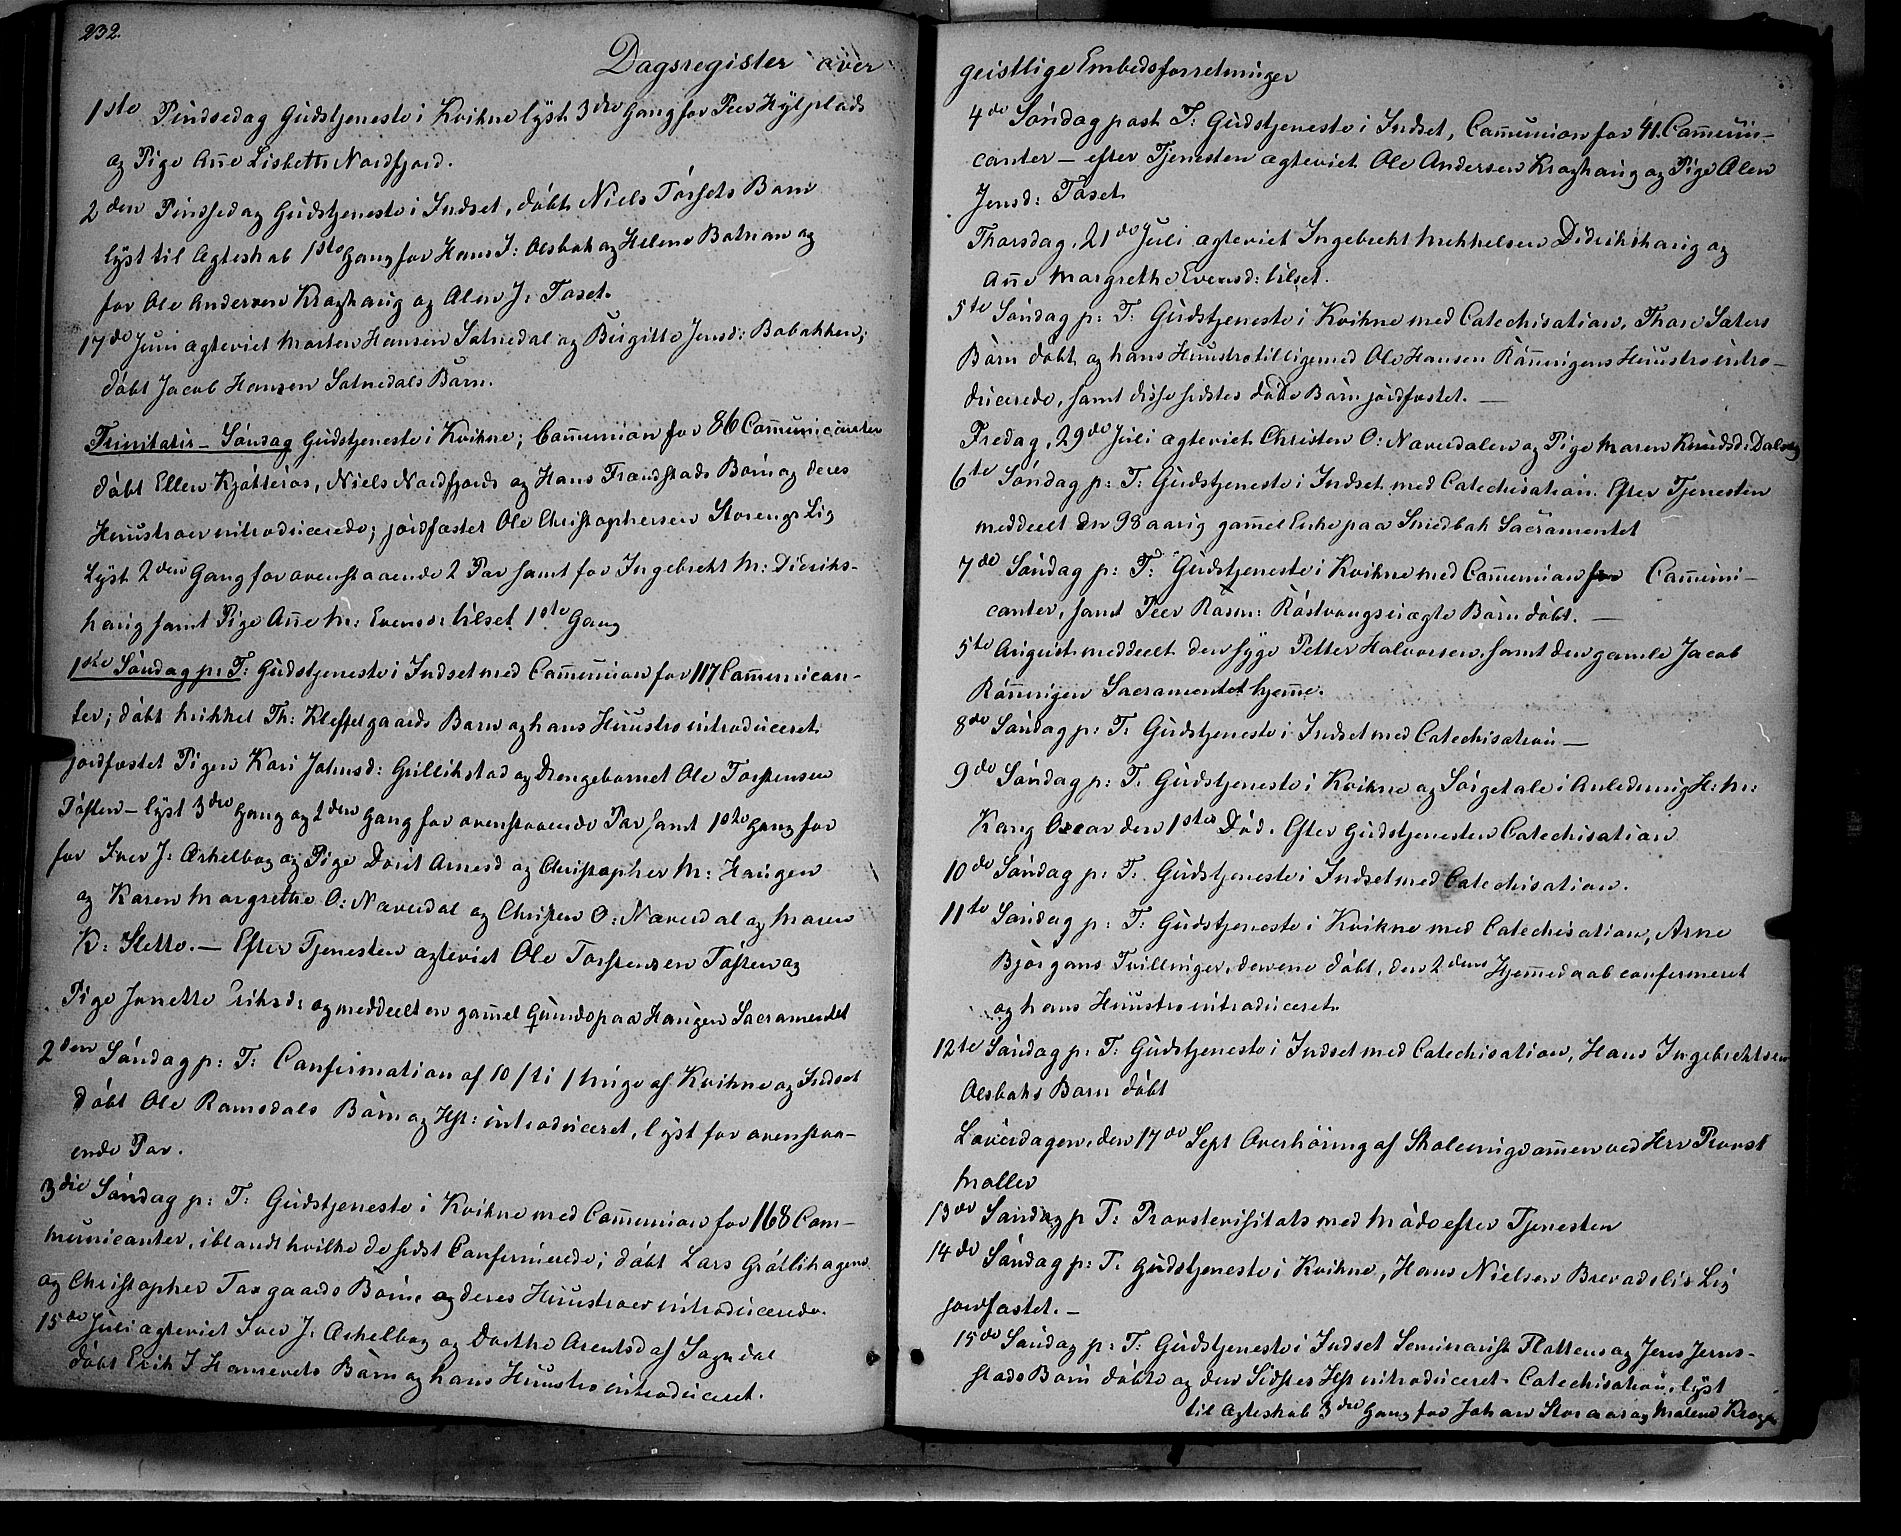 232.
Dagsregister over
1ste Pindsedag Gudstjeneste i Kvikne lyst 3die Gang for Peer Hylplads
og Pige Añe Lisbeth Nordfjord.
2den Pindsedag Gudstjeneste i Indset, døbt Niels Torsets Barn
lyst til Ægteskab 1ste Gang for Hans I: Olsbak og Helene og
for Ole Andersen Kroghaug og Alen J: Toset.
17de Juni ægteviet Morten Hansen Solnedal og Birgitte Jensd: Bobakken;
døbt Jacob Hansen Solnedals Barn.
Trinitatis-Søndag Gudstjeneste i Kvikne; Com̃union for 86 Com̃unicanter
døbt Ellen Kjøtterøs, Niels Nordfjords og Hans Frandstads Børn og deres
Huustroer introducerede; jordfæstet Ole Christophersen Storengs Lig
Lyst 2den Gang for ovenstaaende 2 Par samt for Ingebrekt M: Didriks-
haug samt Pige Añe M: Evensd: Lilset 1ste Gang
1ste Søndag p: T: Gudstjeneste i Indset med Com̃union for 117 Com̃unican-
ter; døbt Mikkel Th: Kleffelgaards Barn og hans Huustro introduceret
jordfæstet Pigen Kari Johnsd: Gullikstad og Drengebarnet Ole Torstensen
Tosten - lyst 3die Gang og 2den Gang for ovenstaaende Par samt 1ste Gang for
for Iver J: Askelbog og Pige Dorit Arnesd og Christopher M: Haugen
og Karen Margrethe O: Næverdal og Christen O: Næverdal og Maren
K: Slette. - Efter Tjenesten ægteviet Ole Torstensen Tosten og
Pige Jonette Eriksd: og meddeelt en gam̃el paa Haugen Sacramentet
2den Søndag p: T: Confirmation af 10/ti/ Unge af Kvikne og Indset
døbt Ole Ramsdals Barn og Hst: introduceret, lyst for ovenstaa-
ende Par.
3die Søndag p: T: Gudstjeneste i Kvikne med Com̃union for 168 Com-
municanter, iblandt hvilke de sidst Confirmerede; døbt Lars Grøtlihagens
og Christopher Torgaards Børn, og deres Huustroer introducerede.
15de Juli ægteviet Iver J. Askelbog og Dorthe Arentsd af Sogndal
døbt Erik I Hansevets Barn og hans Huustro introduceret.
geistlige Embedsforretninger
4de Søndag post T: Gudstjeneste i Indset, Com̃union for 41 Com̃uni-
canter - efter Tjenesten ægteviet Ole Andersen Kroghaug og Pige Alen
Jensd: Toset
Thorsdag, 21de Juli ægteviet Ingebrekt Mikkelsen Didrikshaug og
Añe Margrethe Evensd: Lilset.
5te Søndag p: T: Gudstjeneste i Kvikne med Catechisation, Thore Sæters
Barn døbt og hans Huustro tilligemed Ole Hansen Røñingens Huustro intro-
ducerede, samt disse sidstes døde Barn jordfæstet. -
Fredag, 29de Juli ægteviet Christen O: Næverdalen og Pige Maren Knudsd: Dalsæg
6te Søndag p: T: Gudstjeneste i Indset med Catechisation. Efter Tjenesten
meddeelt en 98 aarig gam̃el Enke paa Smedbak Sacramentet
7de Søndag p: T: Gudstjeneste i Kvikne med Com̃union for Com̃uni-
canter, samt Peer Rasm: Røstvangs uægte Barn døbt. -
5te August meddeelt den syge Petter Halvorsen samt den gamle Jacob
Røñingen Sacramentet hjem̃e.
8de Søndag p: T: Gudstjeneste i Indset med Catechisation -
9de Søndag p: T: Gudstjeneste i Kvikne og Sørgetale i Anledning H: M:
Kong Oscar den 1stes Død. Efter Gudstjenesten Catechisation
10de Søndag p: T: Gudstjeneste i Indset med Catechisation.
11te Søndag p: T: Gudstjeneste i Kvikne med Catechisation, Arne
Bjørgans Tvillinger, den ene døbt, den 2dens Hjem̃edaab confirmeret
og hans Huustro introduceret.
12te Søndag p: T: Gudstjeneste i Indset med Catechisation, Hans Ingebrektsen
Olsbaks Barn døbt
Løverdagen, den 17de Sept Overhøring af Skoleungdom̃en ved Herr Provst
Møller
13de Søndag p T: Provstevisitats med Møde efter Tjenesten
14de Søndag p: T: Gudstjeneste i Kvikne, Hans Nielsen Brevadslis Lig
jordfæstet. -
15de Søndag p: T: Gudstjeneste i Indset Seminarist Flattens og Jens Jerns-
stads Børn døbte og den Sidstes Hst introduceret - Catechisation, lyst
til Ægteskab 3die Gang for Johan Storaas og Malene Krog